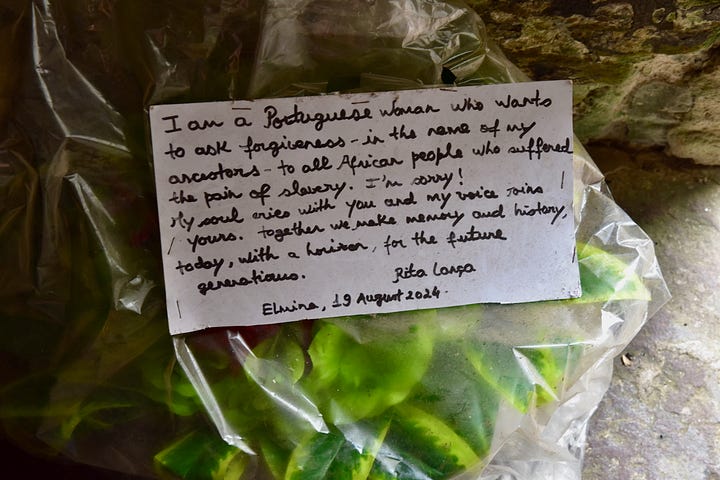 I am a Portuguese woman who wants
to ask forgiveness - in the name of my
ancestors - to all African people who suffered
the pain of slavery. I'm sorry!
My soul cries with you and my voice joins
yours. together we make memory and history,
today, with a horizon, for the future
generations.
Rita Lança
Elmina, 19 August 2024.